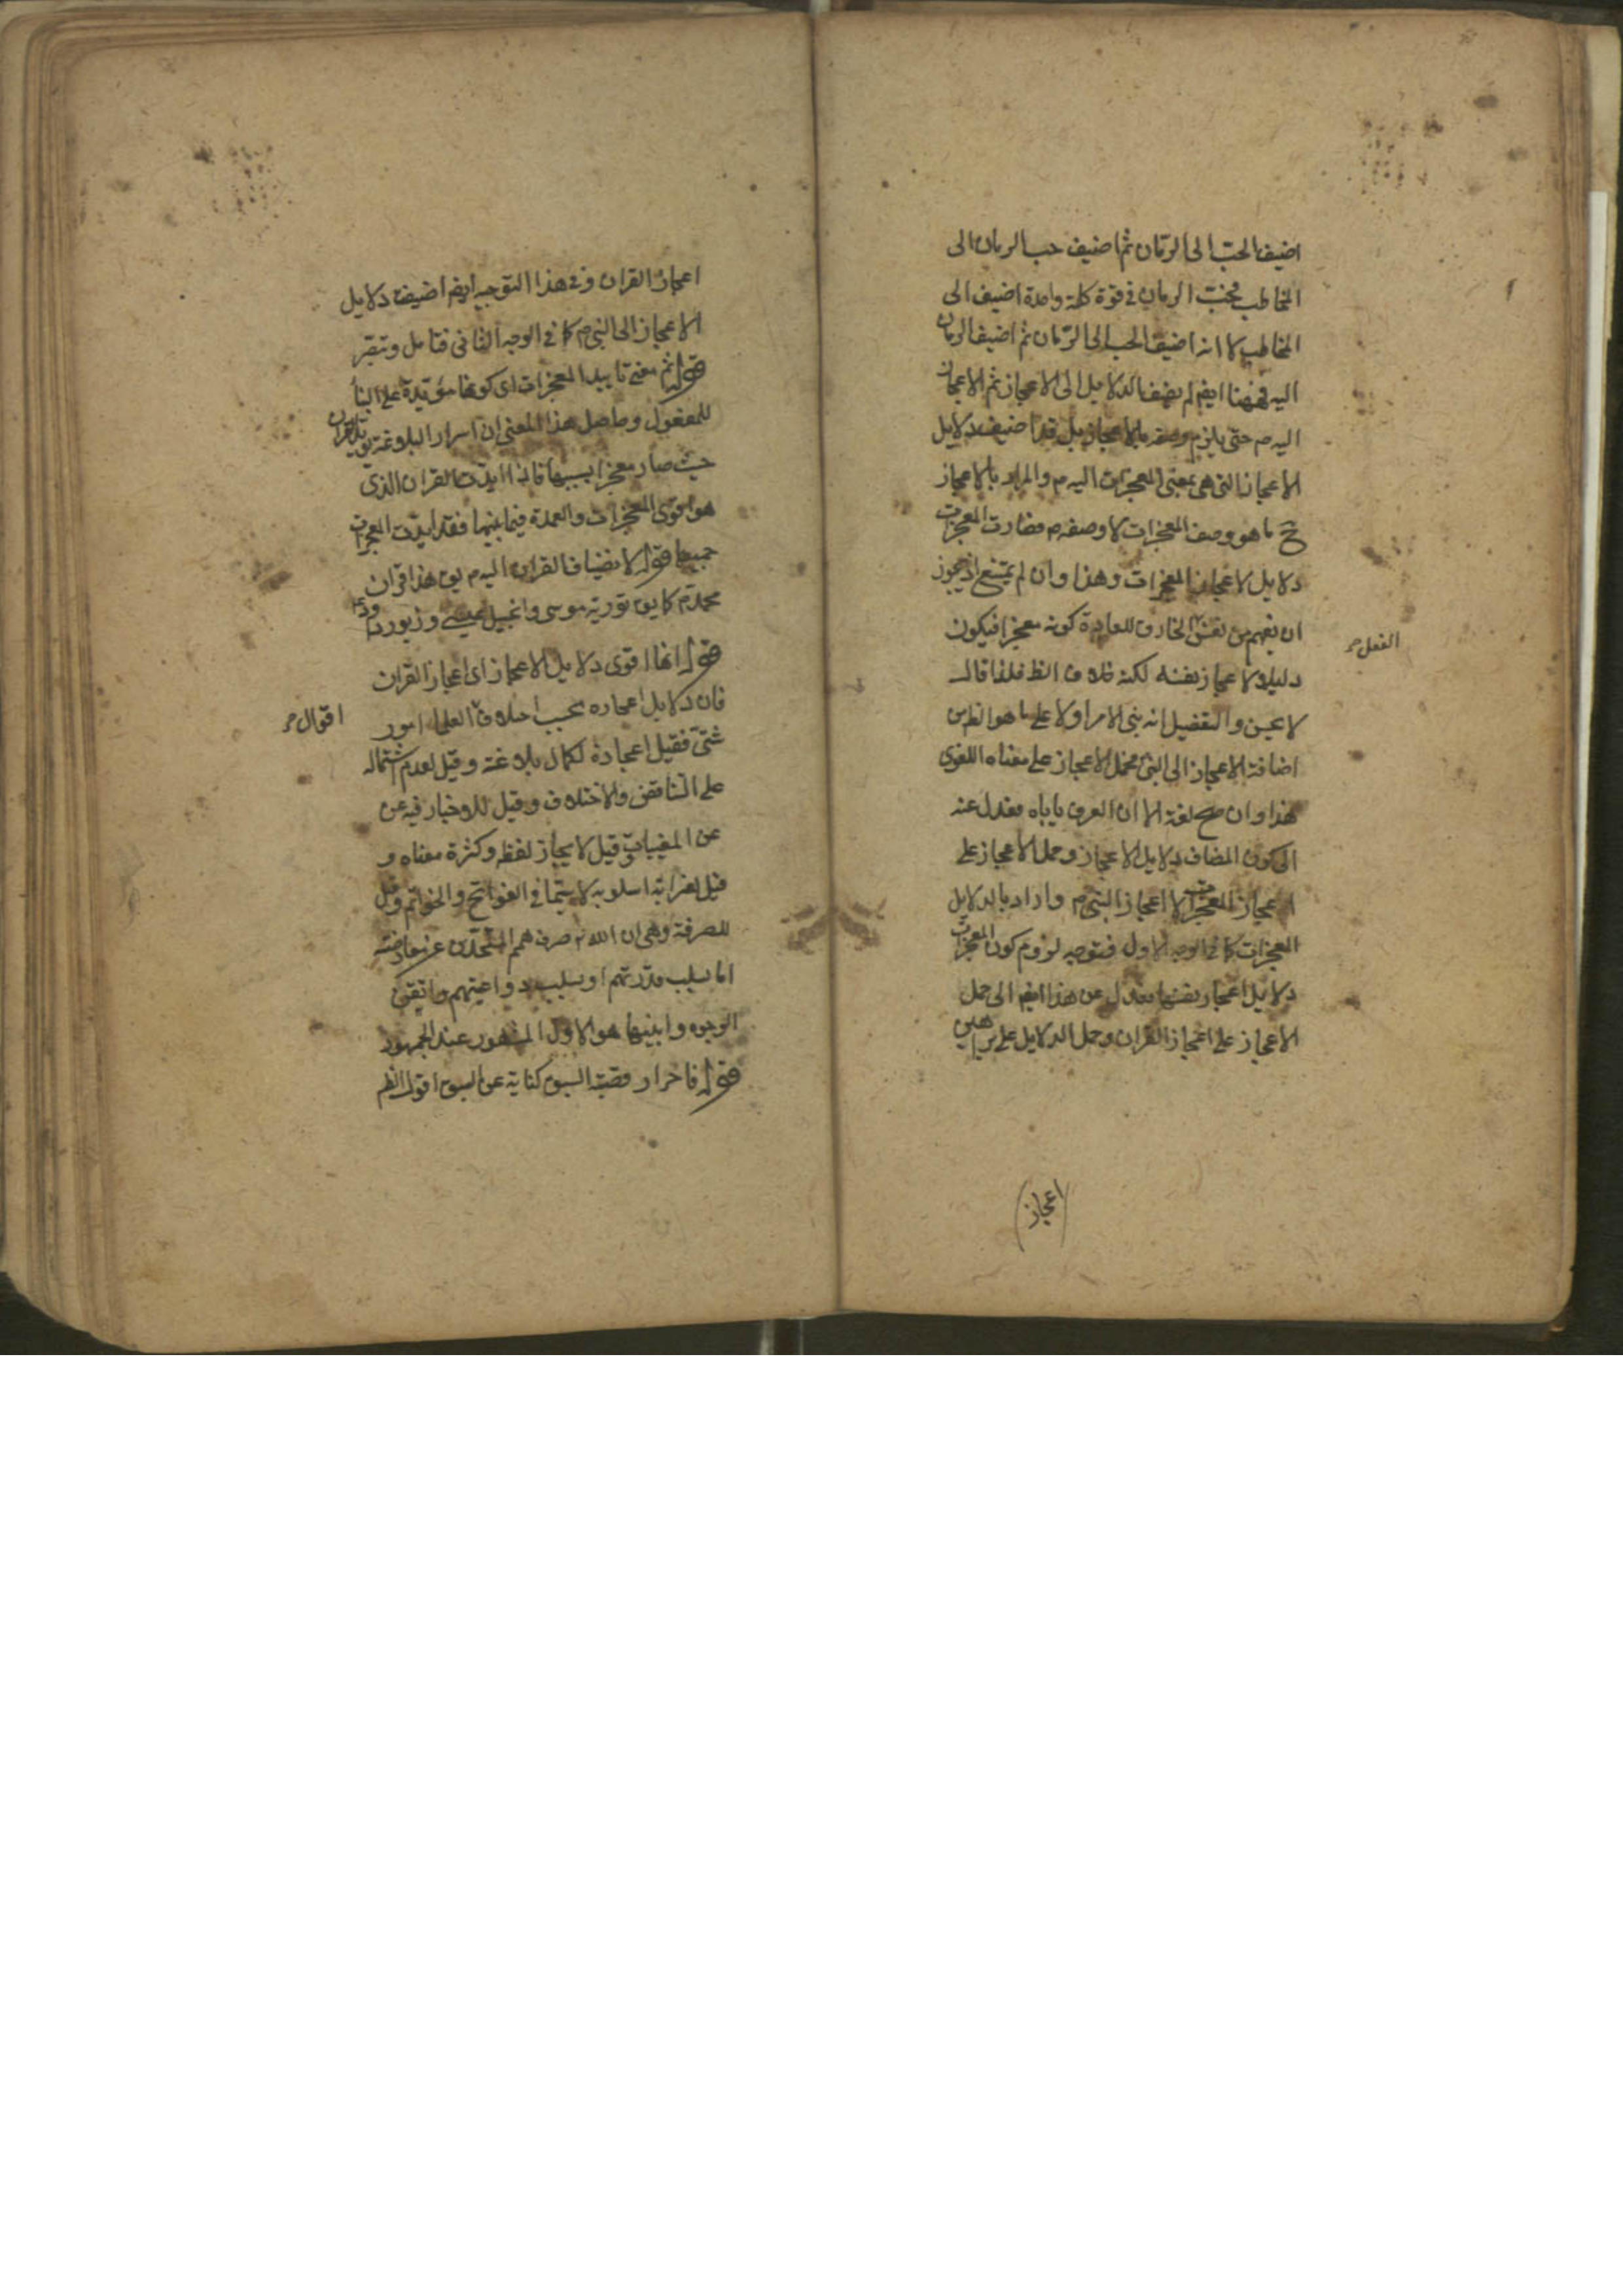 اضيف الحب الى الرمّان ثم اضيف حب الرمان الى
المخاطب فحب الرمان فى قوة كلمة واحدة اضيف الى
المخاطب لا انه اضيف الحب الى الرمّان ثم اضيف الرمان
اليه فههنا ايضم لم يضف الدلايل الى الاعجاز ثم الاعجاز
اليه م حتى يلزم وصفه بالاعجاز بل قد اضيف دلايل
الاعجاز التى هى بمعنى المعجزات اليه م والمراد بالاعجاز
ح ما هو وصف المعجزات لا وصفه م فصارت المعجزات
دلايل لاعجاز المعجزات وهذا وان لم يمتنع اذ يجوز
ان يفهم من نفس الخارق للعادة كونه معجزا فيكون
الفعل
دليلا لاعجاز نفسه لكنه خلاف الظ فلذا قال
لا عين والتفضيل انه بنى الامر اولا على ما هو الظ من
اضافة الاعجاز الى النبى فحمل الاعجاز على معناه اللغوى
فهذا وان صح لغة الا ان العرف ياباه فعدل عنه
الى كون المضاف دلايل الاعجاز وحمل الاعجاز على
اعجاز المعجزات لا اعجاز النبى م واراد بالدلايل
المعجزات كما فى الوجه الاول فتوجه لزوم كون المعجزات
دلايل اعجاز نفسها فعدل عن هذا ايضم الى حمل
الاعجاز على اعجاز القران وحمل الدلايل على براهين
اعجاز
اعجاز القران وفى هذا التوجيه ايضم اضيف دلايل
الاعجاز الى النبى م كما فى الوجه الثانى فتامل وتبصر
قوله ثم معنى تاييد المعجزات اى كونها مؤيدة على البنا
للمفعول وحاصل هذا المعنى ان اسرار البلاغة تؤيد القران
حيث صار معجزا بسببها فاذا ايدت القران الذى
هو اقوى المعجزات والعمدة فيما بينها فقد ايدت المعجزات
جميعها قوله لانضياف القران اليه م يق هذا قران
محمد م كما يق تورية موسى وانجيل عيسى وزبور داود
قوله انها اقوى دلايل الاعجاز اى اعجاز القران
فان دلايل اعجازه بحسب اختلاف العلماء امور
اقوال
شتى فقيل اعجازه لكمال بلاغته وقيل لعدم اشتماله
على التناقض والاختلاف وقيل للاخبار فيه عن
عن المغيبات وقيل لايجاز لفظه وكثرة معناه و
قيل لغرابة اسلوبه لا سيما فى الفواتح والخواتم وقيل
للصرفة وهى ان الله تع صرف همم المتحدّين عن معارضته
اما بسلب قدرتهم او بسلب دواعيتهم واتقى
الوجوه وابينها هو الاول المشهور عند الجمهور
قوله فاحراز قصبة السبق كناية عن السبق اقول الظ